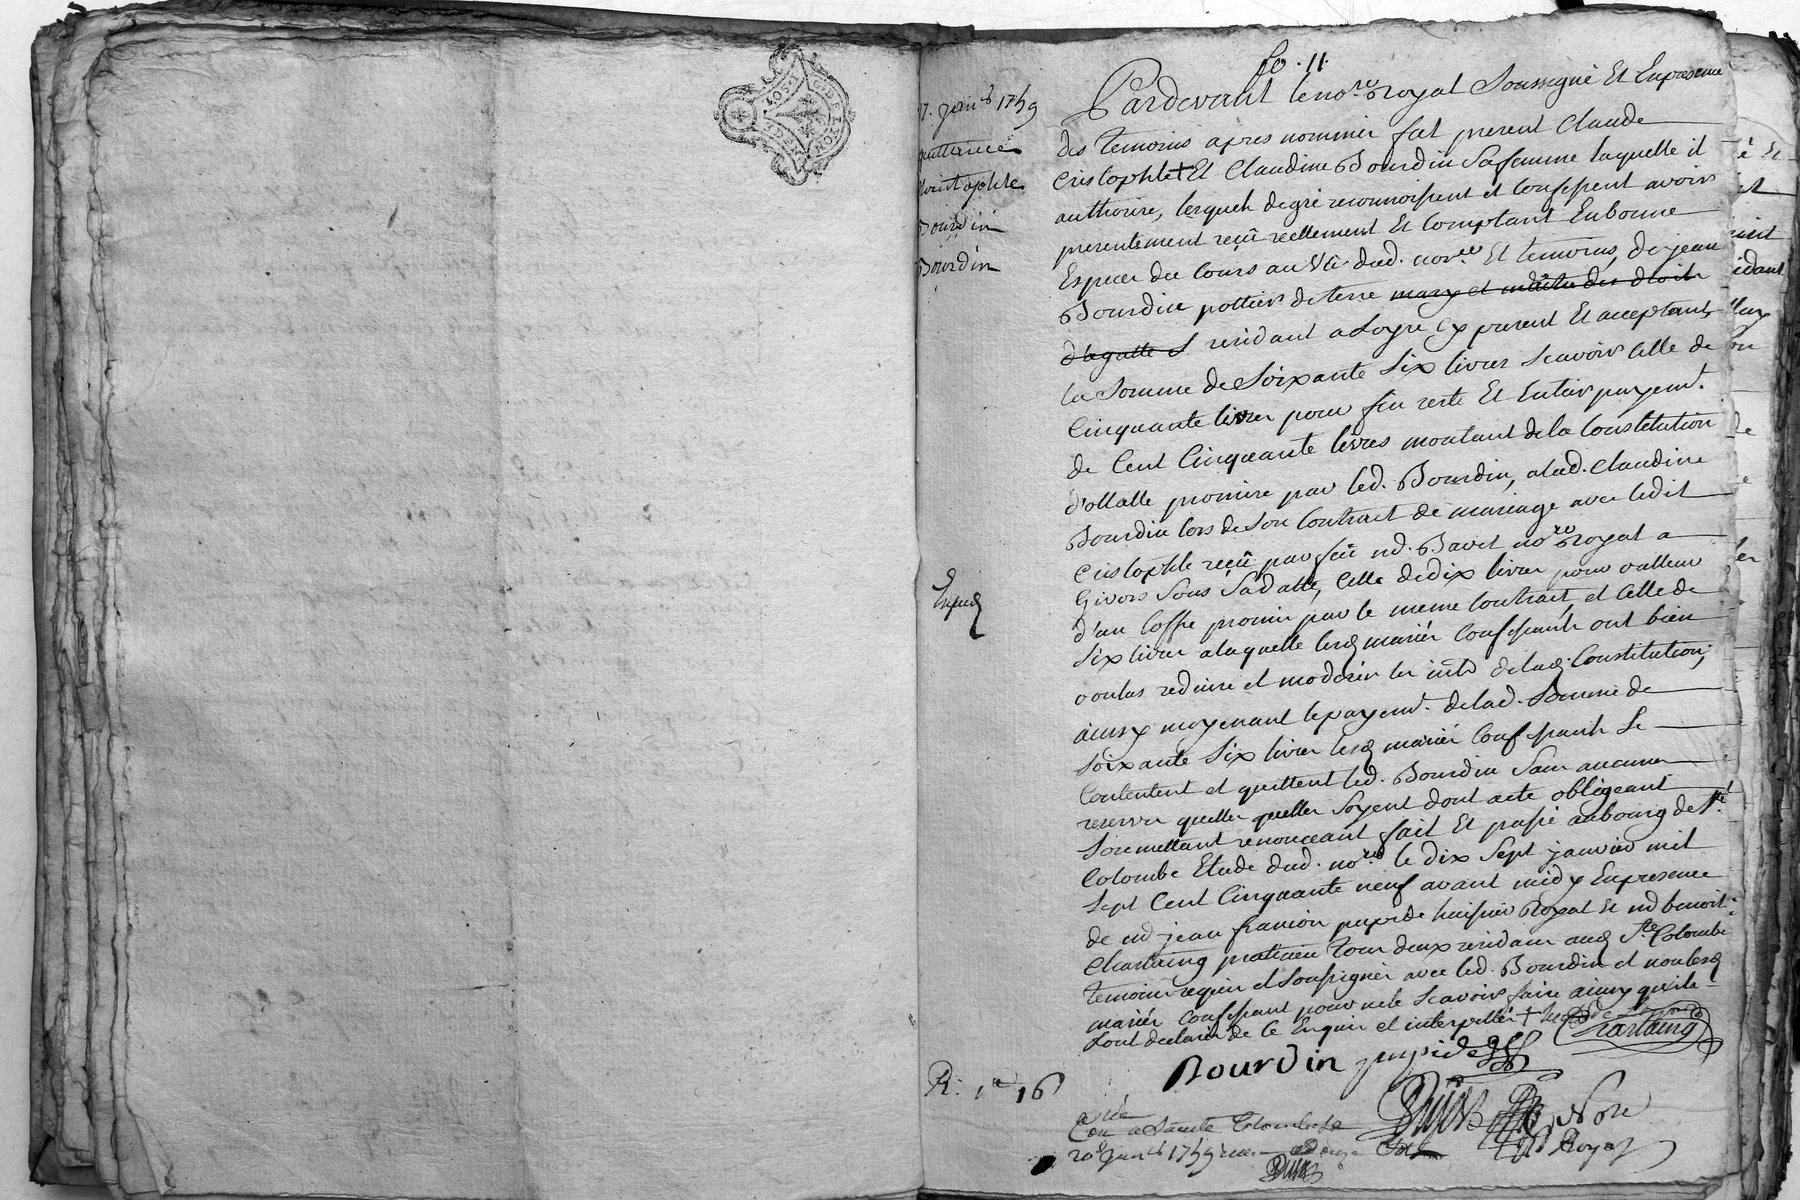 GEN DE LYON
fo. 11.
17. janr 1759
quittance
Christophle
Bourdin
Bourdin
Expedd
R. 1# 16
Pardevant le nore Royal Soussigné Et En presence
des temoins apres nommés fut present Claude
Cristophle + Et Claudine Bourdin sa femme laquelle il
authorise, lesquels de gré reconnoissent et confessent avoir
presentement reçû reellement Et comptant En bonne
Especes du Cours au vû dud. nore Et temoins, de jean
Bourdin pottier de terre
residant a Loyre Cy present Et acceptant
la somme de soixante six livres scavoir celle de
cinquante livres pour fin reste Et Entier payemt.
de Cent Cinquante livres montant de la Constitution
dottalle promise par led. Bourdin, a lad. Claudine
Bourdin lors de son Contract de mariage avec ledit
Cristophle reçû par feû md. Bavet nore Royal a
Givors sous sa datte, celle de dix livres pour valleur
d'un Coffre promis par le meme Contract, et celle de
six livres a laquelle lesd mariés confessants ont bien
voulus reduire et moderer les ints de lad. Constitution,
ainsy moyenant le payemt. de lad. somme de
soixante six livres lesd mariés confessants se
Contentent et quittent led. Bourdin sans aucunes
reserves quelles quelles soyent dont acte obligeant
soremettant renonceant fait Et passé au bourg de Ste
Colombe Etude dud. nore le dix sept janvier mil
sept Cent Cinquante neuf avant midy En presence
de md jean francois pupide huissier Royal Et md benoit
Chartaing praticien tous deux residans aud Ste Colombe
temoins requis et soussignés avec led. Bourdin et non lesd
mariés confessant pour ne le scavoir faire ainsy qu'ils
l'ont declaré de ce Enquis et interpellés +
Chartaing
Bourdin pupide
Nore
Royal
Con a Sainte Colombe le
20 janr 1759